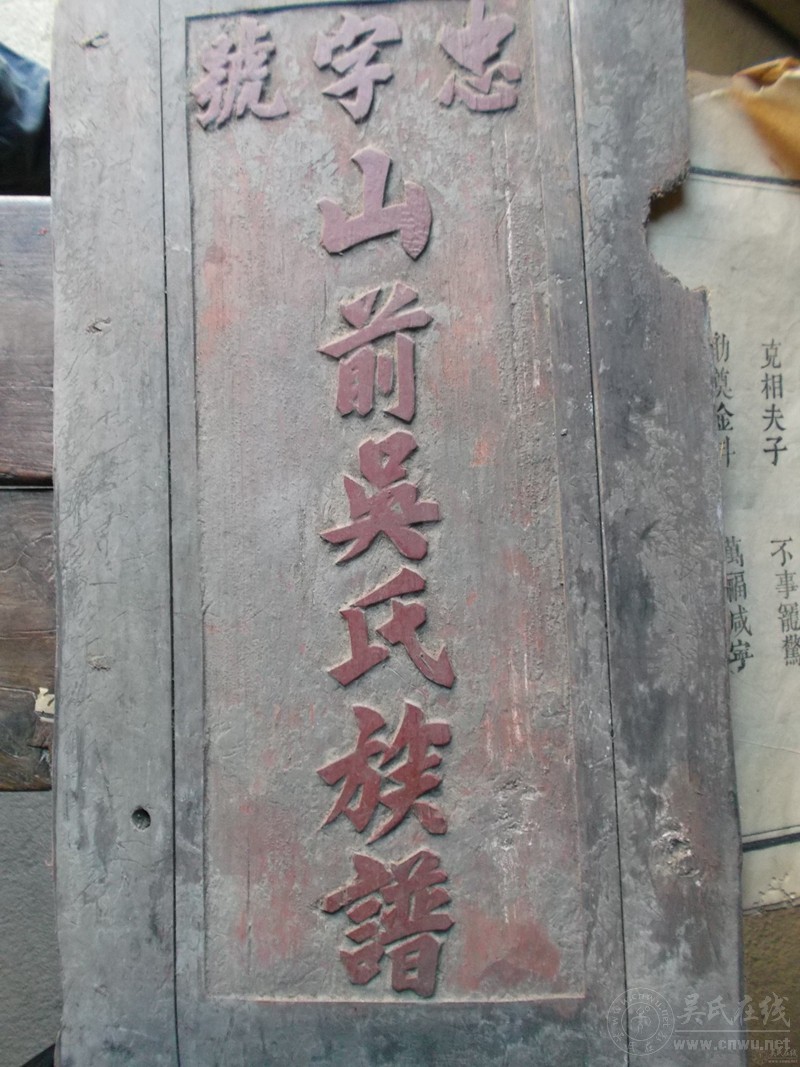 忠字號
山前吳氏族譜
克相夫子
不事
金
萬福咸寧
吴氏在线
www.cnwu.net